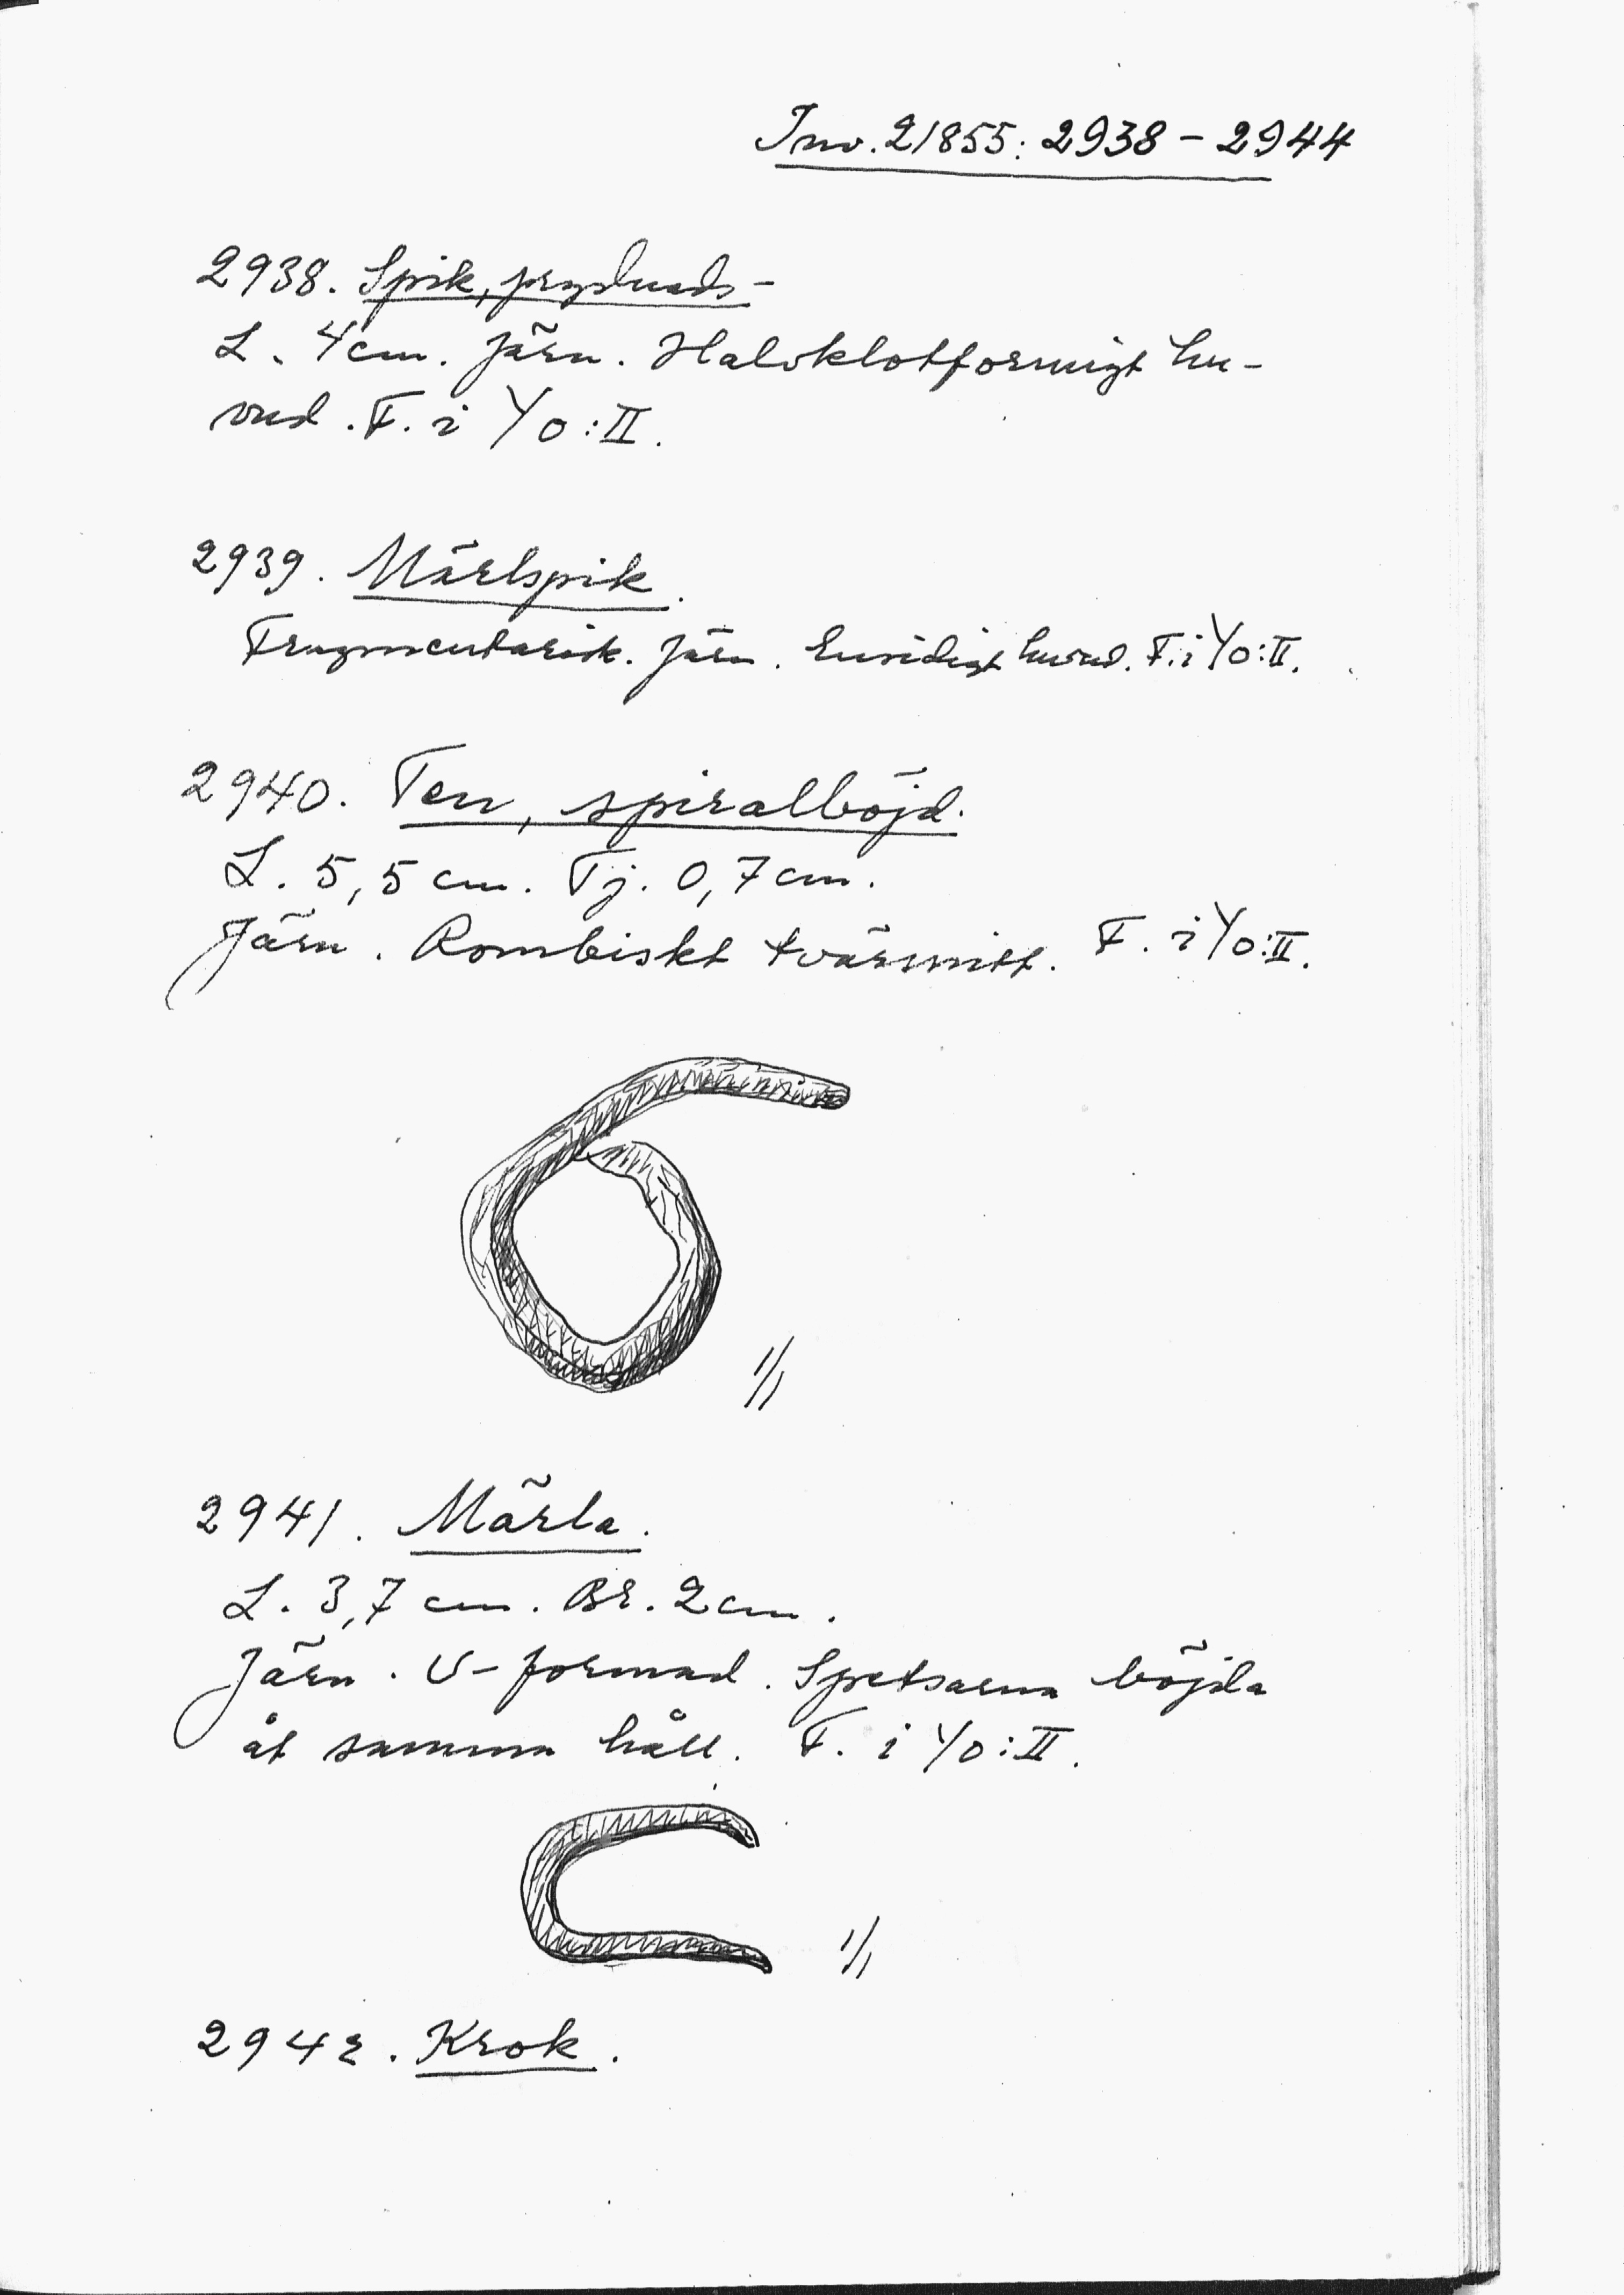 Inv. 21855: 2938 - 2944
2938. Spik, prydnads-
L. 4 cm. Järn. Halvklotformigt hu-
vud. F. i Yo:II.
2939. Märlspik.
Fragmentarisk. Järn. Ensidigt huvud. F. i Yo:II.
2940. Ten, spiralböjd.
L. 5,5 cm. Tj. 0,7 cm.
Järn. Rombiskt tvärsnitt. F. i Yo:II.
1/1
2941. Märla.
L. 3,7 cm. Br. 2 cm.
Järn. U-formad. Spetsarna böjda
åt samma håll. F. i Yo:II.
1/1
2942. Krok.